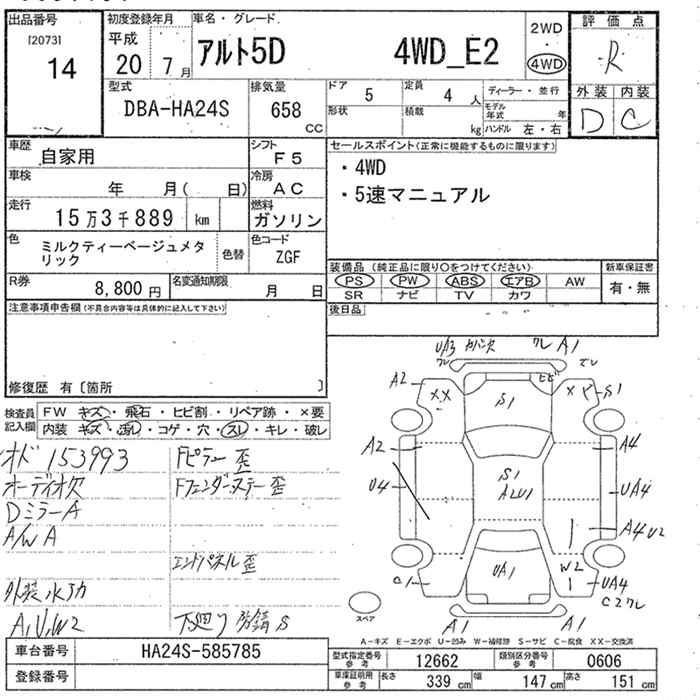 出品番号 初度登録年月 車名・グレード 評価点
[2073] 平成 2WD
14 20 7月 アルト5D 4WD_E2 4WD R
型式 排気量 ドア 5 定員 4 人 ディーラー・並行 外装 内装
DBA-HA24S 658 CC 形状 積載 kg モデル年式 年 D C
ハンドル 左・右
車歴 自家用 シフト F5 セールスポイント(正常に機能するものに限ります)
車検 年 月( 日) 冷房 AC ・4WD
走行 15万3千889 km 燃料 ガソリン ・5速マニュアル
色 ミルクティーベージュメタリック 色替 色コード ZGF
装備品 (純正品に限り○をつけてください) 新車保証書
R券 8,800円 名変通知期限 月 日 PS PW ABS エアB AW 有・無
SR ナビ TV カワ
注意事項申告欄(不具合内容等は具体的に記入して下さい) 後日品
修復歴 有〔箇所 〕
検査員記入欄 FW キズ・飛石・ヒビ割・リペア跡・×要
内装 キズ・汚レ・コゲ・穴・スレ・キレ・破レ
オド 153993 Fピラー歪
オーディオ欠 Fフェンダーステー歪
DミラーA
A/W A
エンドパネル歪
外装水アカ
A1,U1,W2 下廻り防錆S
UA3 ワレ A1
ワレ
A2 XX S1 ヒビ XX S1
A2 A4
U4 S1 UA4
A2U1
A4 U2
C1 UA1 W2 UA4
C2ワレ
A1 A1
スペア
A-キズ E-エクボ U-凹み W-補修跡 S-サビ C-腐食 XX-交換済
車台番号 HA24S-585785 型式指定番号 参考 12662 類別区分番号 参考 0606
登録番号 車庫証明用 参考 長さ 339 cm 幅 147 cm 高さ 151 cm